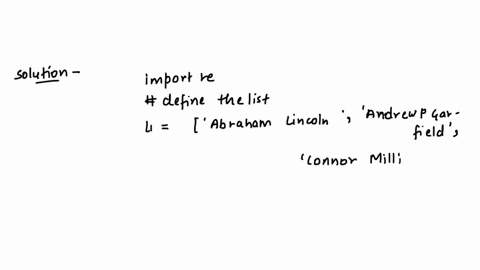 solution -
import re
# define the list
L1 = ['Abraham Lincoln ', 'Andrew P Gar-
field',
'Connor Milli